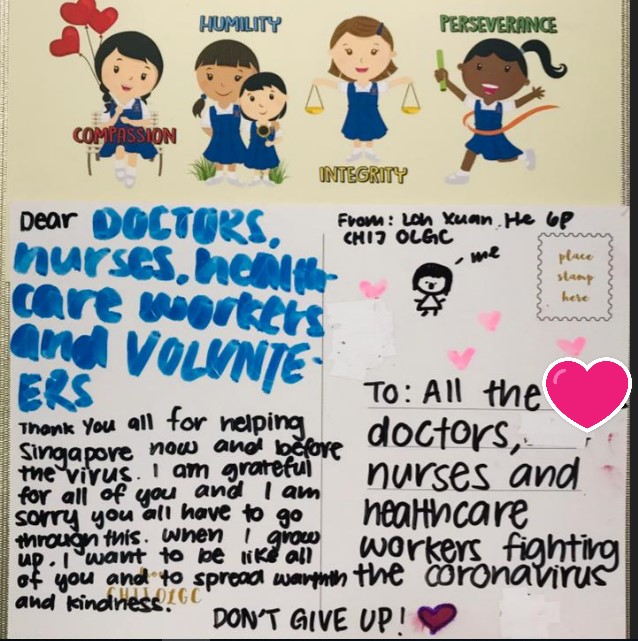 HUMILITY
PERSEVERANCE
COMPASSION
INTEGRITY
Dear DOCTORS,
nurses, health-
care workers
and VOLUNTE-
ERS
Thank you all for helping
Singapore now and before
the virus. I am grateful
for all of you and I am
sorry you all have to go
through this. When I grow
up, I want to be like all
of you and to spread warmth
and kindness.
CHIJ OLGC
From: Loh Xuan He 6P
CHIJ OLGC
me
place
stamp
here
To: All the
doctors,
nurses and
healthcare
workers fighting
the coronavirus
DON'T GIVE UP!